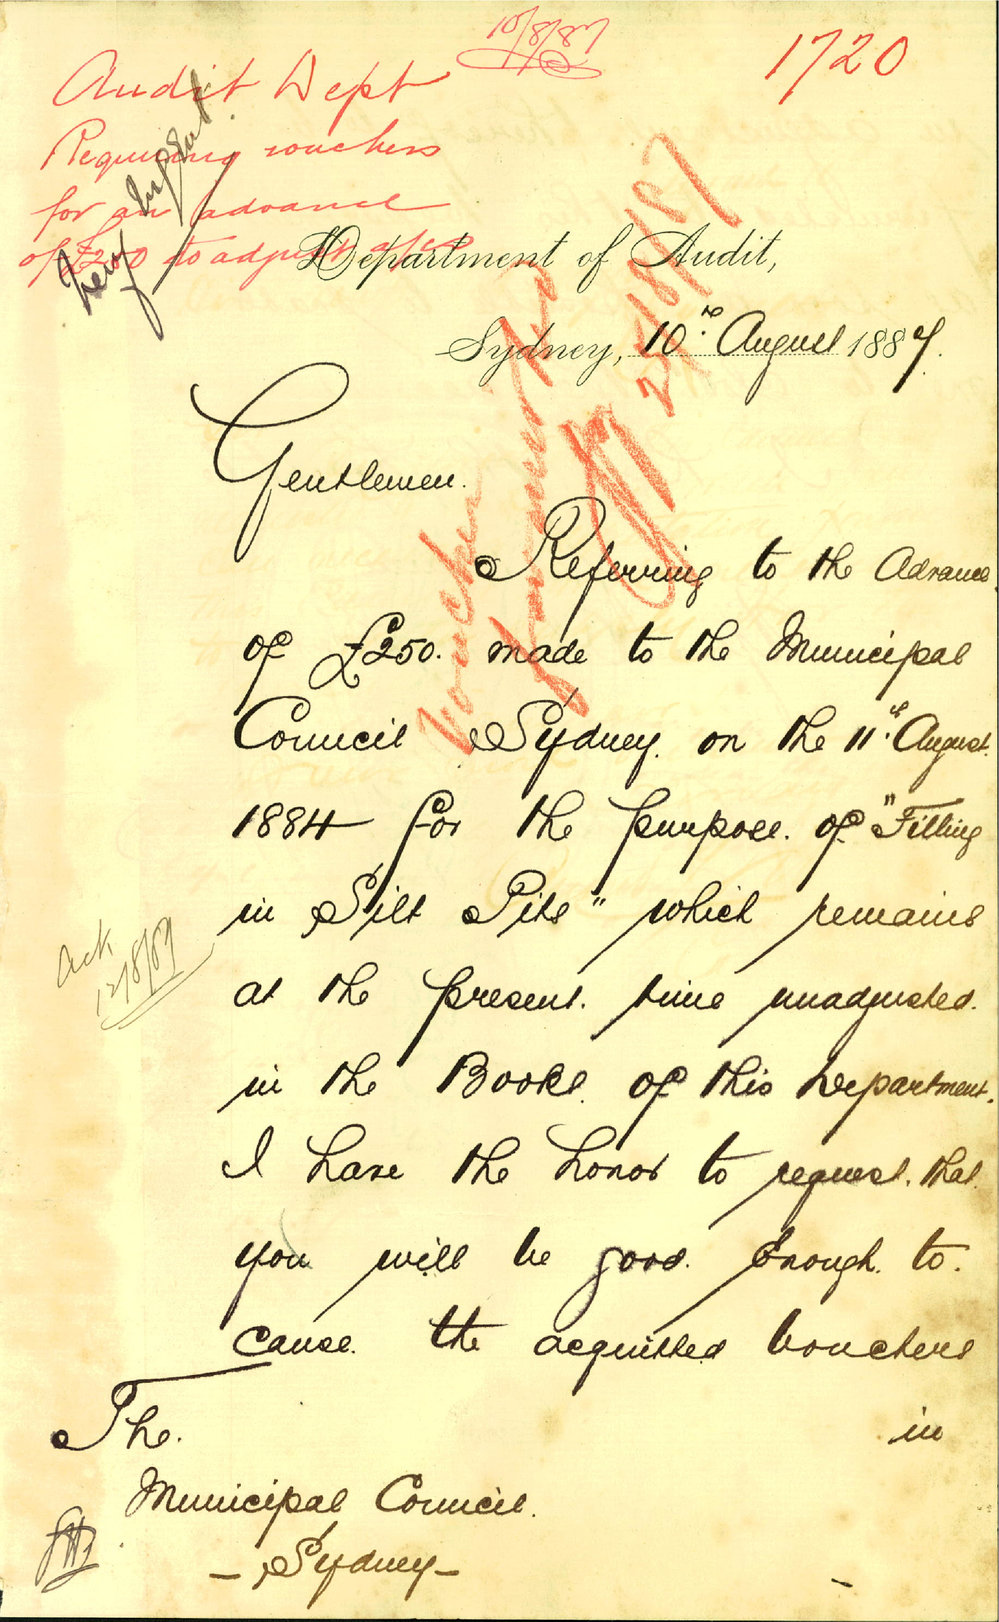 10/8/87
1720
Audit Dept
Requiring vouchers
for an advance
of £250 to adjust
Department of Audit,
Sydney, 10th August 1887.
Gentlemen.
Referring to the Advance
of £250. made to the Municipal
Council Sydney. on the 11th August.
1884 for the purpose. of "Filling
in Silt Pits" which remains
at the present. time unadjusted.
in the Books. of this Department.
I have the honor to request. that.
you will be good. Enough. to.
cause. the acquitted Vouchers
in
The.
Municipal Council.
- Sydney -
Ack
12/8/87
Vouchers
2/8/87